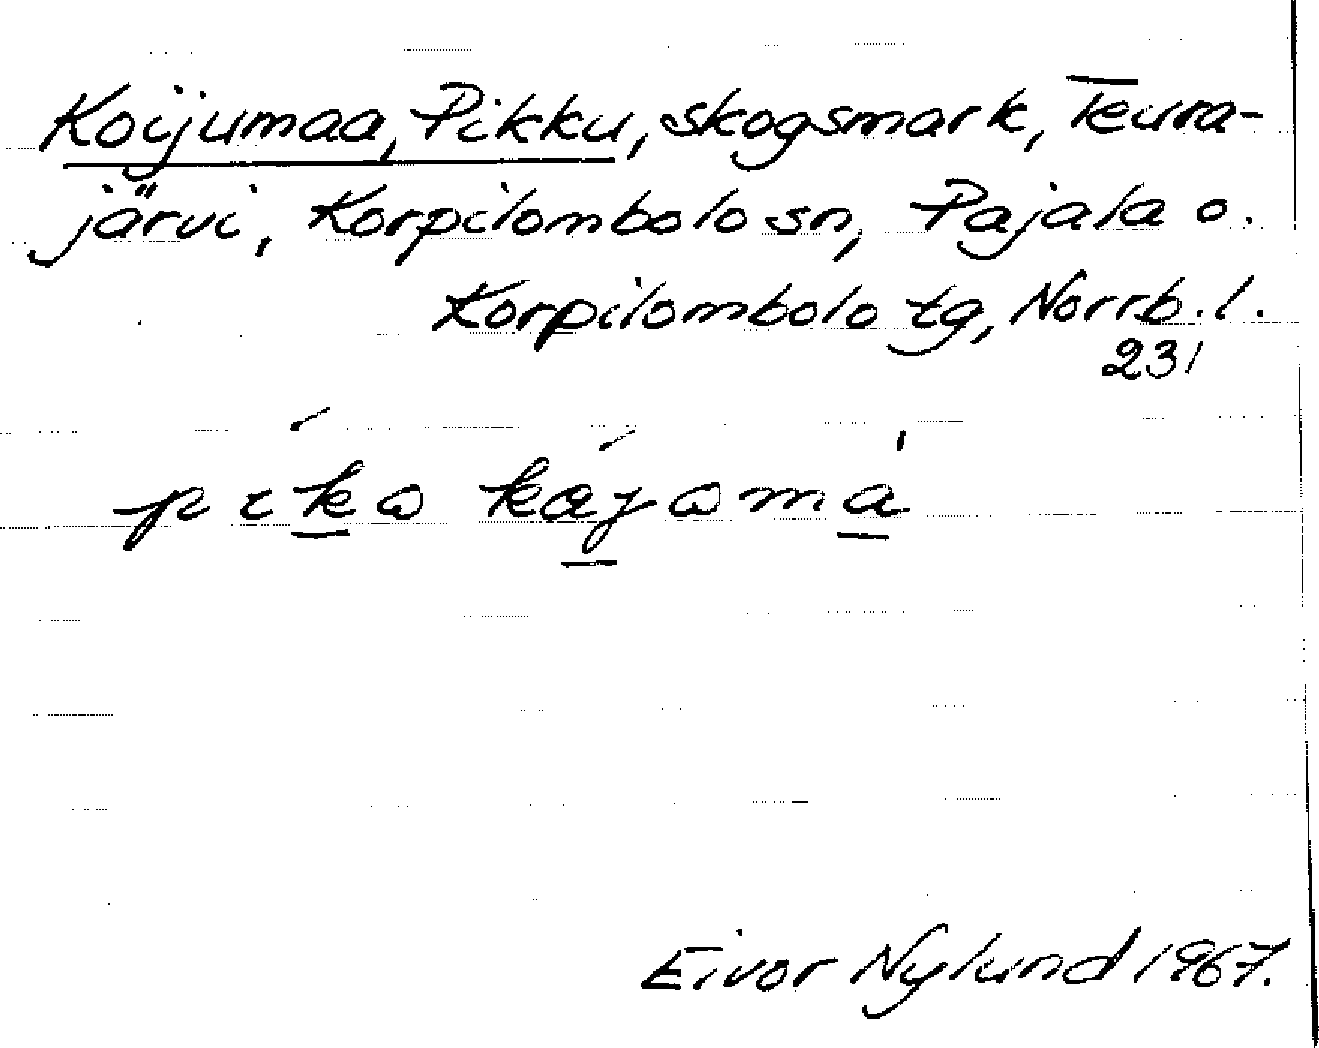 Koijumaa, Pikku, skogsmark, Teura-
järvi, Korpilombolo sn, Pajala o.
Korpilombolo tg, Norrb. l.
231
Eivor Nylund 1967.